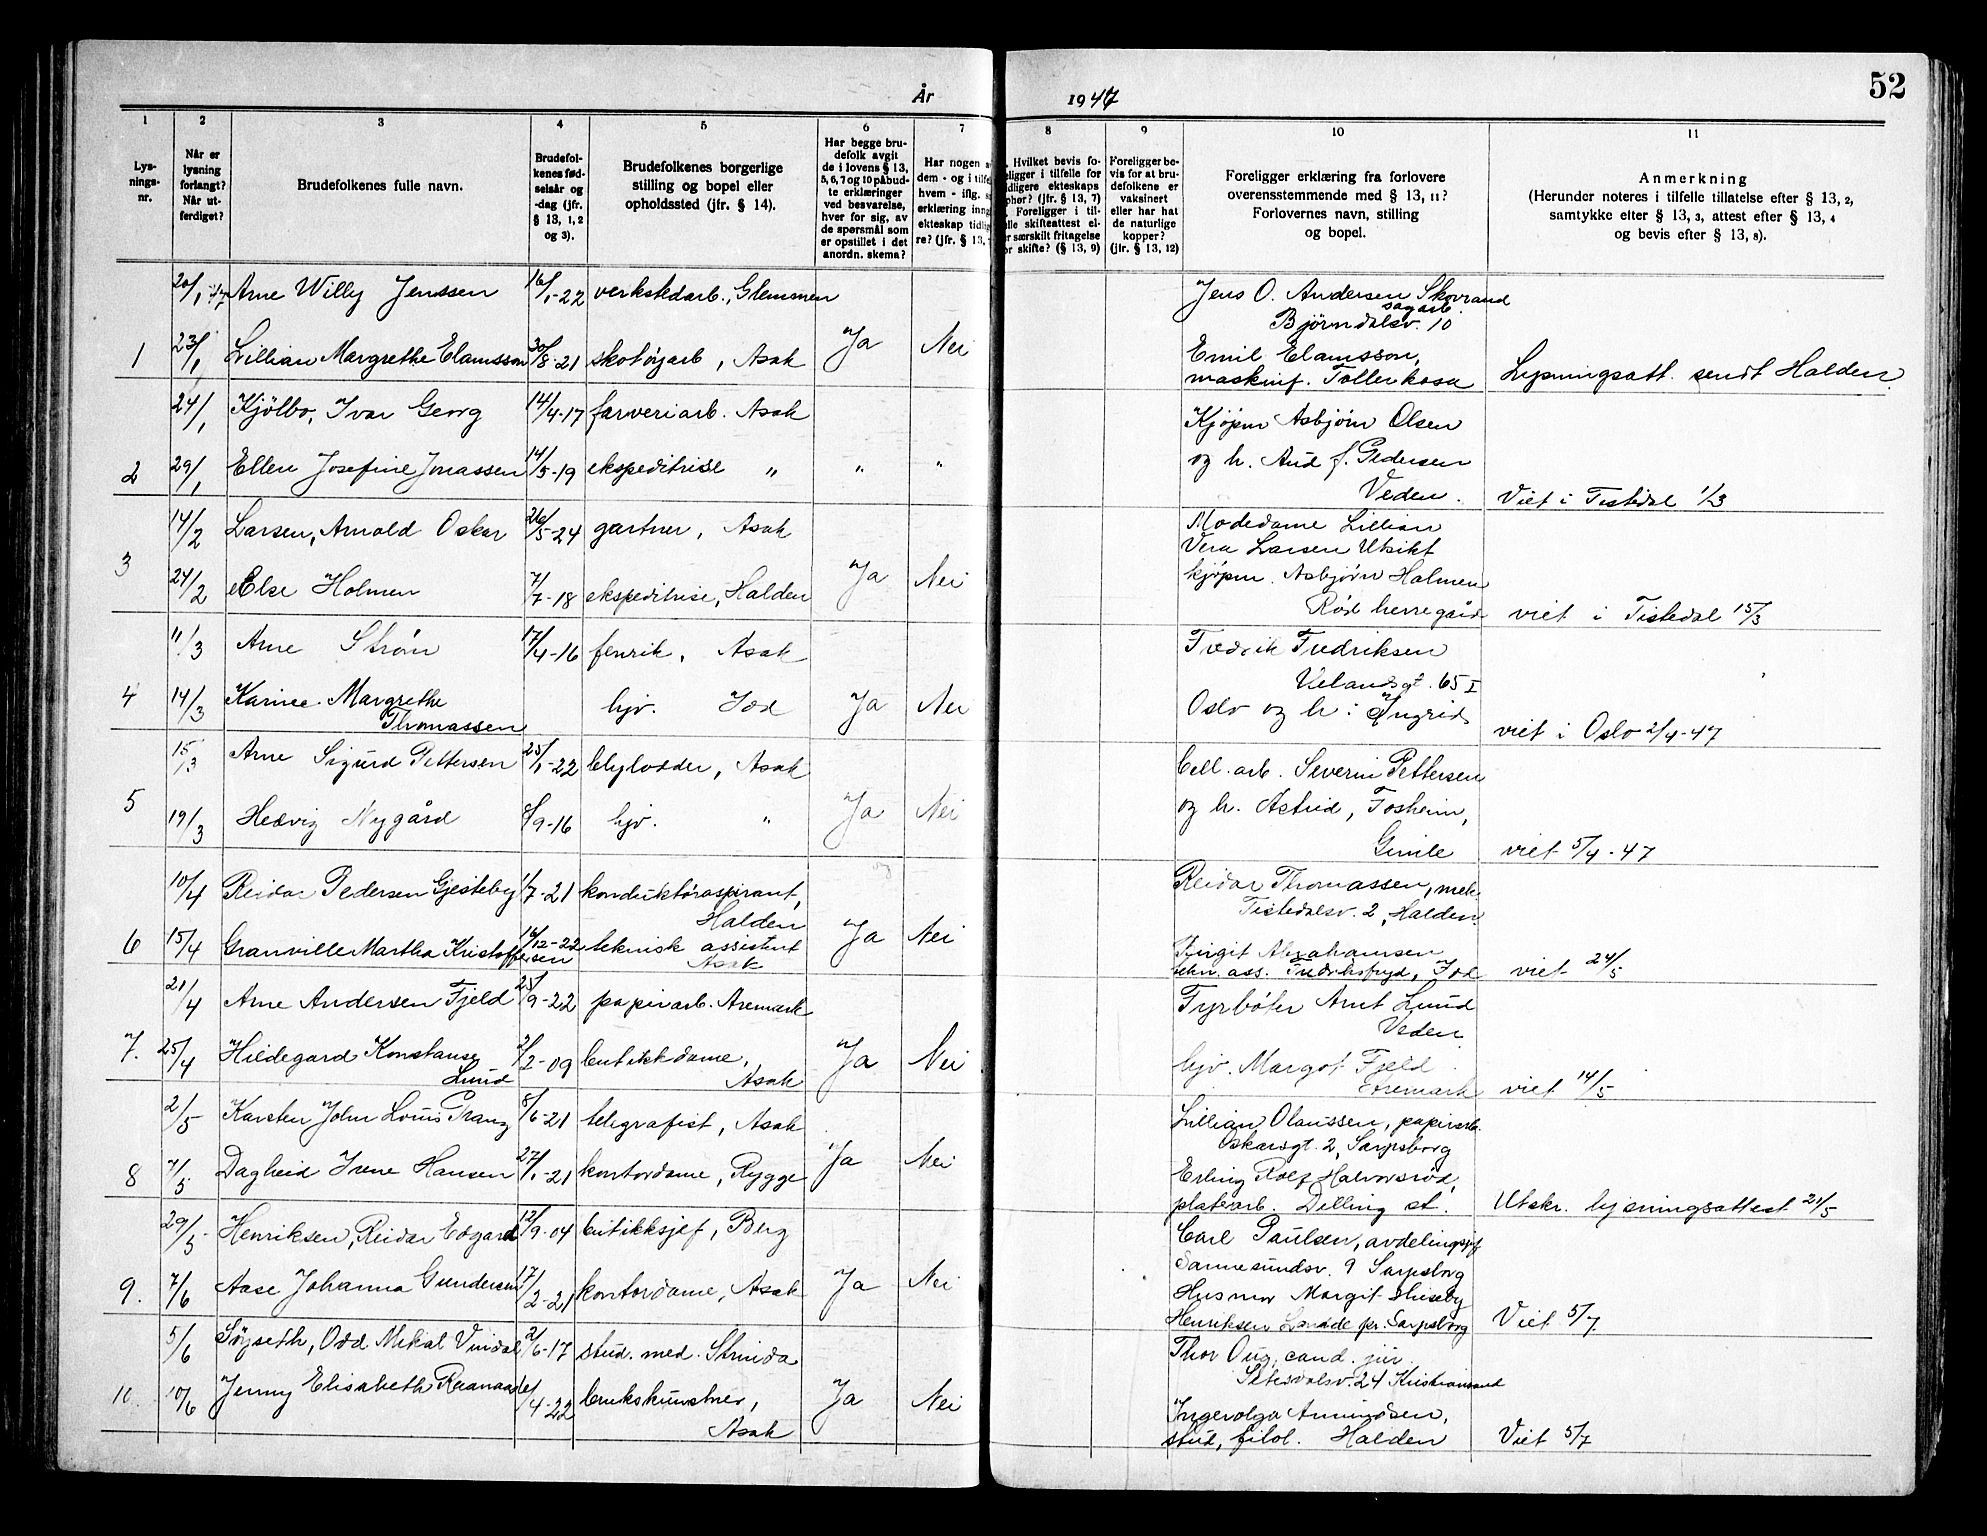 52
År 1947
1 2 3 4 5 6 7 8 9 10 11
Lys-
nings-
nr.
Når er
lysning
forlangt?
Når ut-
ferdiget?
Brudefolkenes fulle navn.
Brudefol-
kenes fød-
selsår og
-dag (jfr.
§ 13, 1, 2
og 3).
Brudefolkenes borgerlige
stilling og bopel eller
opholdssted (jfr. § 14).
Har begge bru-
defolk avgit
de i lovens § 13,
5, 6, 7 og 10 påbud-
te erklæringer
ved besvarelse,
hver for sig, av
de spørsmål som
er opstillet i det
anordn. skema?
Har nogen a
dem - og i tilfe
hvem - iflg. s
erklæring inng
ekteskap tidlig
re? (jfr. § 13,
Hvilket bevis fo-
eligger i tilfelle for
dligere ekteskaps
phør? (jfr. § 13, 7)
Foreligger i til-
lle skifteattest el-
r særskilt fritagelse
or skifte? (§ 13, 9)
Foreligger be-
vis for at bru-
defolkene er
vaksinert
eller har hat
de naturlige
kopper?
(jfr. § 13, 12)
Foreligger erklæring fra forlovere
overensstemmende med § 13, 11?
Forlovernes navn, stilling
og bopel.
Anmerkning
(Herunder noteres i tilfelle tillatelse efter § 13, 2,
samtykke efter § 13, 3, attest efter § 13, 4
og bevis efter § 13, 8).
20/1-47 Arne Willy Jenssen 16/1-22 verkstedarb., Glemmen
Jens O. Andersen Skovrand
sagarb.
Bjørndalsv. 10
1 23/1 Lillian Margrethe Elamsson 30/8-21 skotøjarb, Asak Ja Nei
Emil Elamsson,
maskinf. Tollerkasa Lysningsatt. sendt Halden
24/1 Kjölbo, Ivar Georg 14/4-17 farveriarb. Asak
Kjøpm Asbjørn Olsen
2 29/1 Ellen Josefine Jonassen 14/5-19 ekspeditrise " " "
og h. Aud f. Pedersen
Veden. Viet i Tistedal 1/3
14/2 Larsen, Arnold Oskar 26/5-24 gartner, Asak
Modedame Lillian
Vera Larsen Utsikt
3 24/2 Else Holmen 7/7-18 ekspeditrise, Halden Ja Nei
kjøpm. Asbjørn Holmen
Röd herregård viet i Tistedal 15/3
11/3 Arne Ström 17/4-16 fenrik, Asak
Fredrik Fredriksen
Kelandsgt. 65 I
4 14/3 Karine Margrethe
Thomassen hjv. Idd Ja Nei
Oslo og h: Ingrid viet i Oslo 2/4-47
15/3 Arne Sigurd Pettersen 25/1-22 blylodder, Asak
Cell. arb. Severin Pettersen
5 19/3 Hedvig Nygård 8/9-16 hjv. " Ja Nei
og h. Astrid, Fosheim,
Gimle viet 5/4-47
10/4 Reidar Pedersen Gjesteby 1/7-21 konduktöraspirant,
Halden
Reidar Thomassen, mek.
Tistedalsv. 2, Halden.
6 15/4 Granville Martha Kristoffersen 16/12-22 teknisk assistent
Asak Ja Nei
Birgit Abrahamsen
tekn. ass. Fredriksfryd, Idd viet 24/5
21/4 Arne Andersen Fjeld 25/9-22 papirarb. Aremark
Fyrböter Arnt Lund
Veden
7. 25/4 Hildegard Konstanse
Lund 2/2-09 butikkdame,
Asak Ja Nei
hjv. Margot Fjeld
Aremark viet 14/5
2/5 Karsten John Louis Pranz 8/6-21 telegrafist, Asak
Lillian Olaussen, papirarb.
Oskarsgt. 2, Sarpsborg
8 7/5 Dagheid Irene Hansen 27/1-21 kontordame, Rygge Ja Nei
Erling Rolf Halvorsröd,
platearb. Dilling st. Utskr. lysningsattest 21/5
29/5 Henriksen, Reidar Edgard 12/9-04 butikksjef, Berg
Carl Paulsen, avdelingsjef
Sannesundsv. 9 Sarpsborg
9. 7/6 Aase Johanna Gundersen 17/2-21 kontordame, Asak Ja Nei
Husmor Margit
Henriksen Lande pr. Sarpsborg Viet 5/7
5/6 Søyseth, Odd Mikal Vindal 2/6-17 stud. med. Strinda
Thor Oug, cand. jur.
Setesdalsv. 24 Kristiansand
10. 10/6 Jenny Elisabeth Raanaas 4-22 brukskunstner,
Asak Ja Nei
Ingerolga Amundsen,
stud, filol. Halden Viet 5/7